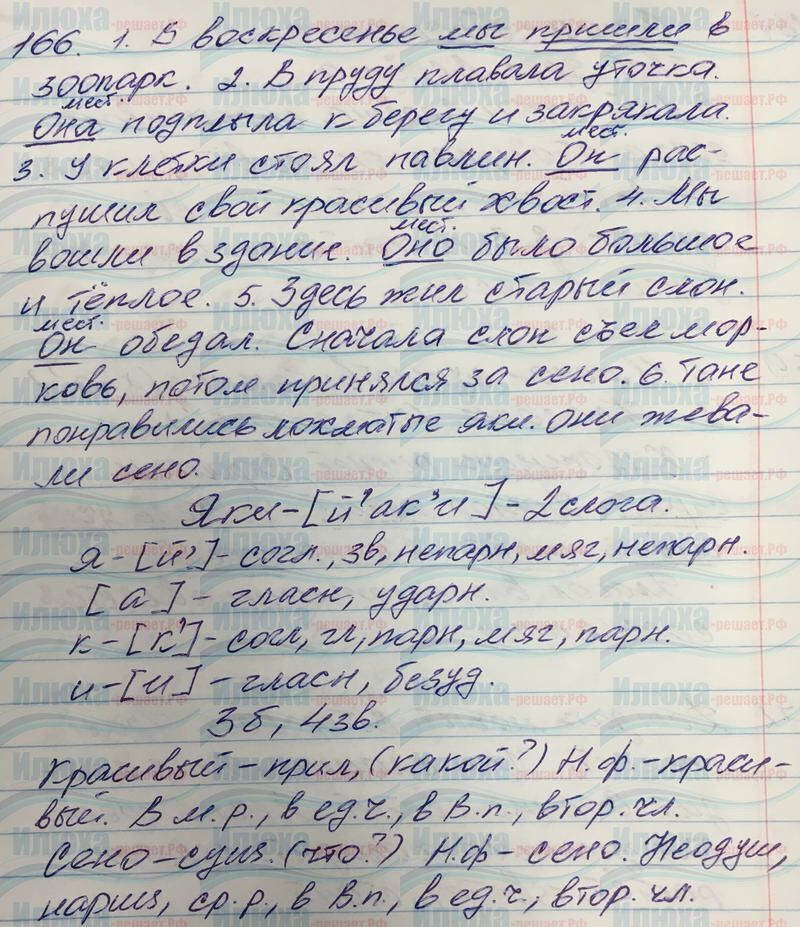 166. 1. В воскресенье мы пришли в
зоопарк. 2. В пруду плавала уточка.
мест.
Она подплыла к берегу и закрякала.
мест.
3. У клетки стоял павлин. Он рас-
пушил свой красивый хвост. 4. Мы
мест.
вошли в здание. Оно было большое
и тёплое. 5. Здесь жил старый слон.
мест.
Он обедал. Сначала слон съел мор-
ковь, потом принялся за сено. 6. Тане
понравились лохматые яки. Они жева-
ли сено.
Яки-[й'ак'и]-2 слога.
я-[й']-согл., зв, непарн, мяг, непарн.
[а]-гласн, ударн.
к-[к']-согл, гл, парн, мяг, парн.
и-[и]-гласн, безуд.
3б, 4зв.
Красивый-прил, (какой?) Н.ф.-краси-
вый. В м.р., в ед.ч., в В.п., втор. чл.
Сено-сущ. (что?) Н.ф-сено. Неодуш,
нариц, ср.р., в В.п., в ед.ч., втор. чл.
Илюха
-решает.РФ